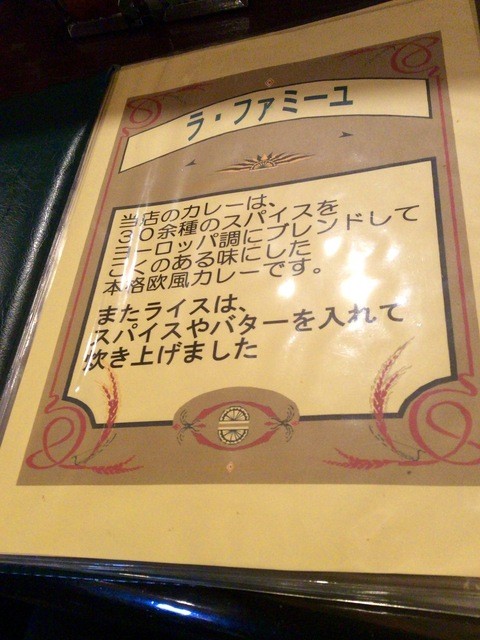 ラ・ファミーユ
当店のカレーは、
３０余種のスパイスを
ヨーロッパ調にブレンドして
こくのある味にした
本格欧風カレーです。
またライスは、
スパイスやバターを入れて
炊き上げました